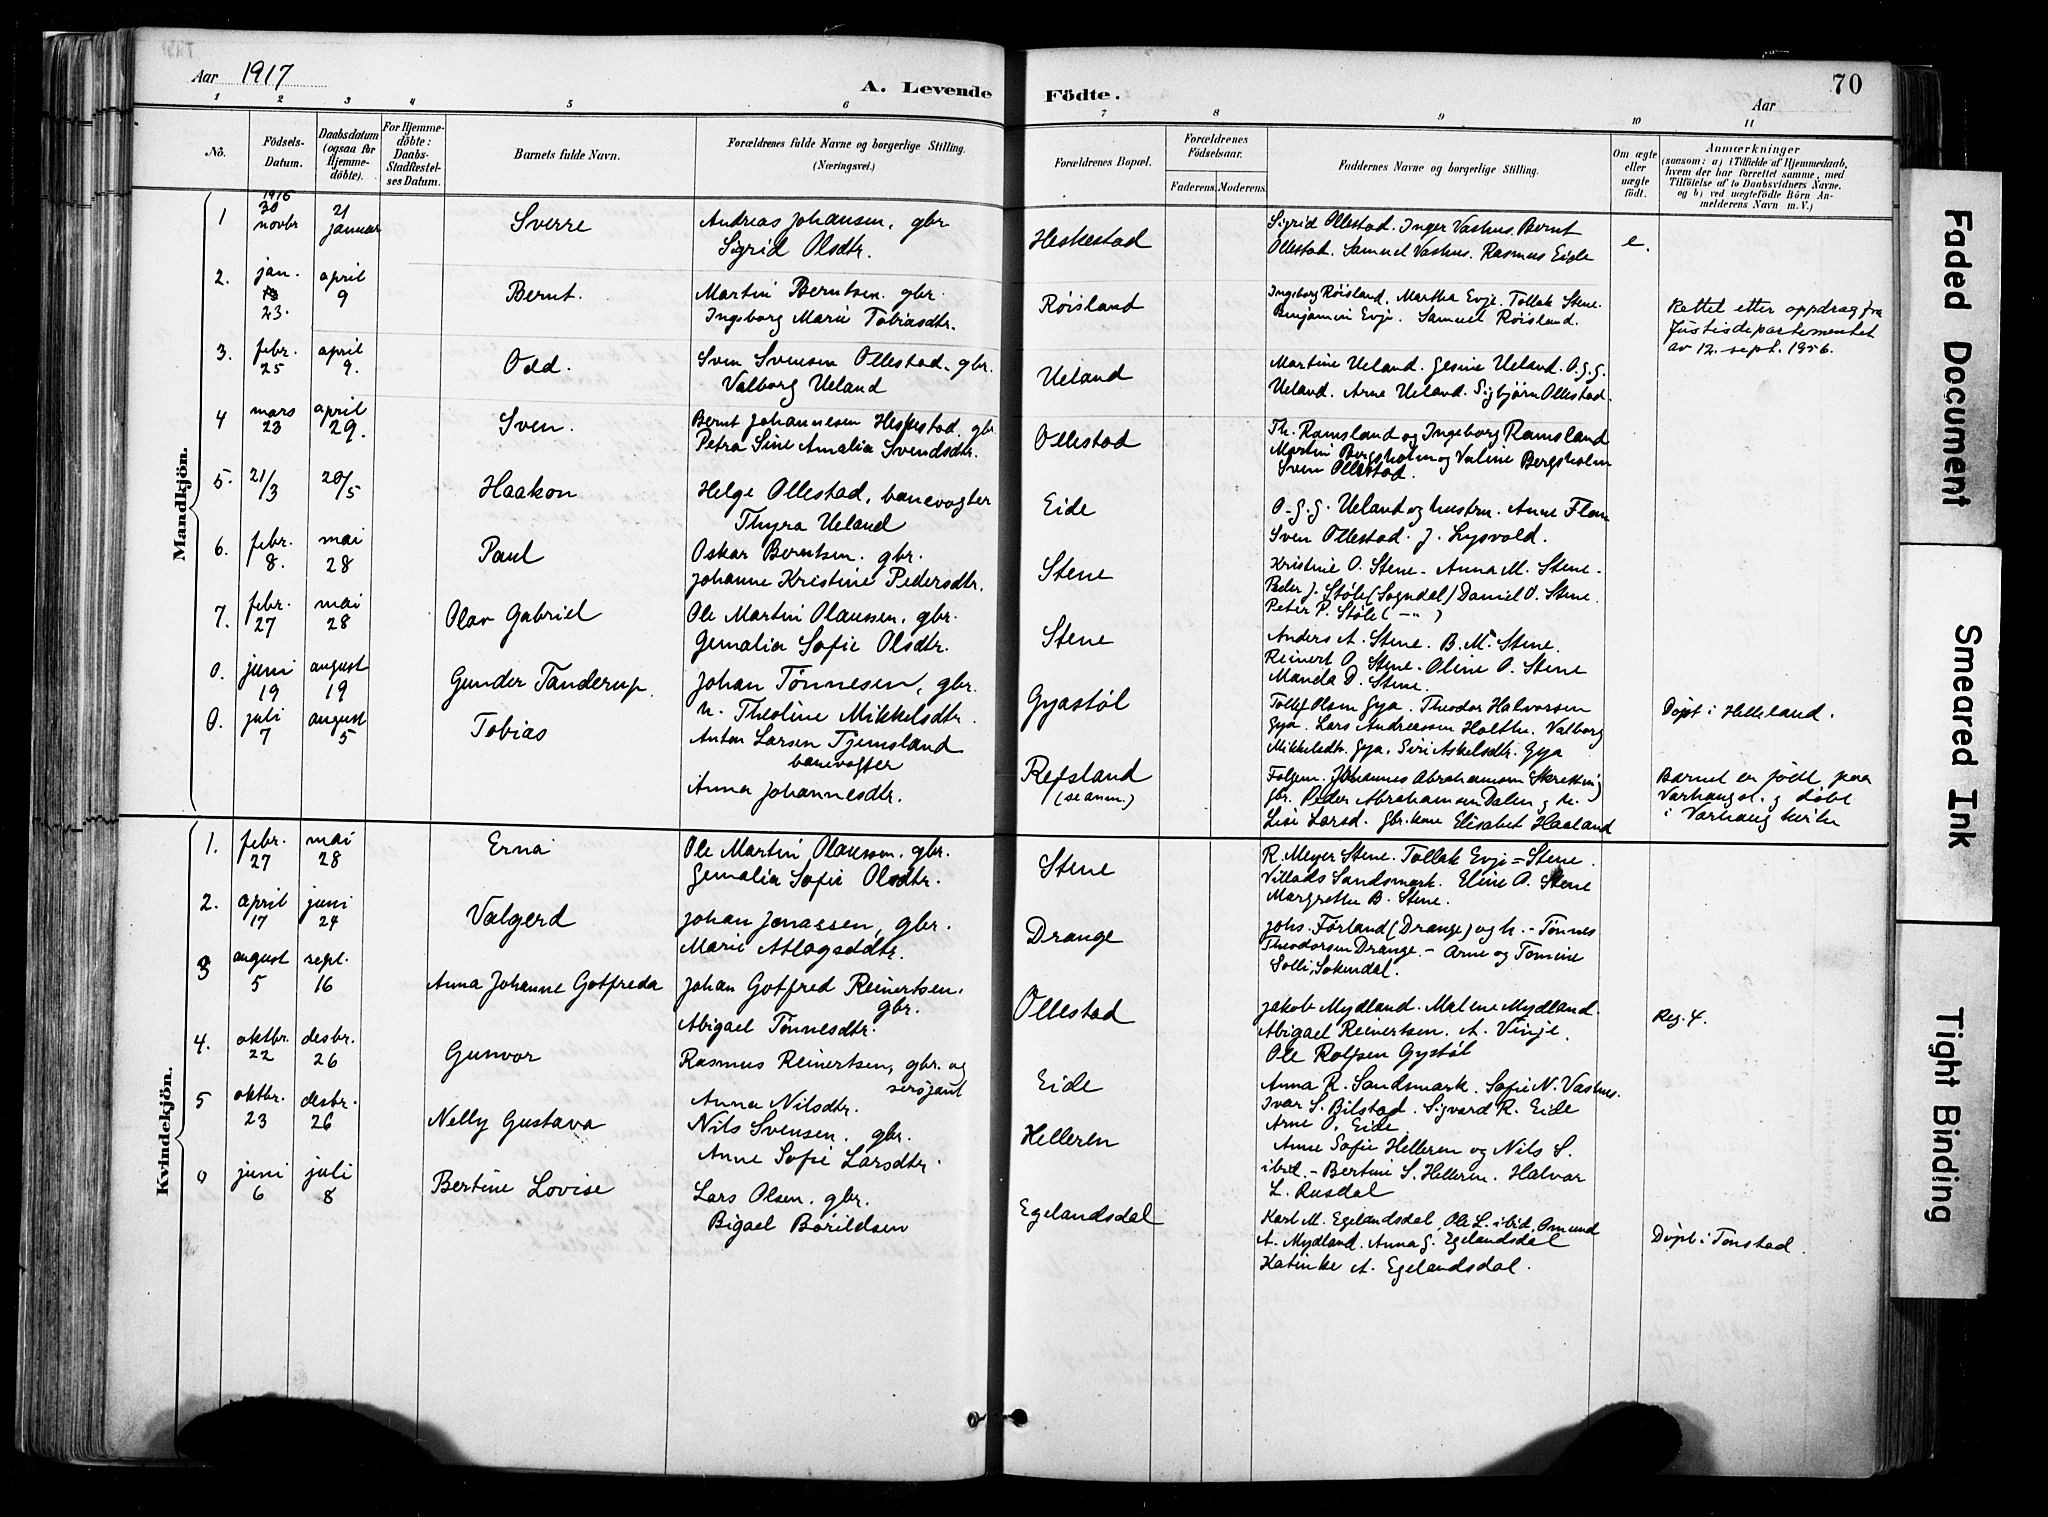 Aar 1917
A. Levende Födte.
70
Aar
1 2 3 4 5 6 7 8 9 10 11
No.
Födsels-Datum.
Daabsdatum (ogsaa for Hjemme-döbte).
For Hjemme-döbte: Daabs-Stadfæstel-ses Datum.
Barnets fulde Navn.
Forældrenes fulde Navne og borgerlige Stilling. (Næringsvei.)
Forældrenes Bopæl.
Forældrenes Födselsaar.
Faderens. Moderens.
Faddernes Navne og borgerlige Stilling.
Om ægte eller uægte födt.
Anmærkninger
(saasom: a) i Tilfælde af Hjemmedaab, hvem der har forrettet samme, med Tilföielse af to Daabsvidners Navne, og b) ved uægtefödte Börn An-melderens Navn m. V.)
Mandkjön.
1 1916 30 novbr 21 januar Sverre Andreas Johansen, gbr Sigrid Olsdtr. Heskestad Sigrid Ollestad. Inger Vashus. Bernt Ollestad. Samuel Vashus. Rasmus Eide e.
2. jan. 23. april 9 Bernt. Martin Berntsen. gbr. Ingeborg Marie Tobiasdtr. Røisland Ingeborg Røisland. Martha Evje. Tollak Stene. Benjamin Evje. Samuel Røisland. Rettet etter oppdrag fra Justisdepartementet av 12. sept. 1956.
3. febr. 25 april 9. Odd. Sven Svensen Ollestad. gbr. Valborg Ueland Ueland Martine Ueland. Gesine Ueland. O.G.G. Ueland. Arne Ueland. Sigbjørn Ollestad.
4 mars 23 april 29. Sven. Bernt Johannesen Heskestad. gbr. Petra Sine Amalia Svendsdtr. Ollestad Th. Ramsland og Ingeborg Ramsland Martin Bergsholm og Valine Bergsholm Sven Ollestad.
5. 21/3 20/5 Haakon Helge Ollestad, banevogter Thyra Ueland Eide O.G.G. Ueland og hustru. Anne Sven Ollestad. J. Lysvold.
6. febr. 8. mai 28 Paul Oskar Berntsen. gbr. Johanne Kristine Pedersdtr. Stene Kristine O. Stene. Anna M. Stene. Peder J. Støle (Sogndal) Daniel O. Stene. Peter P. Støle (-"-)
7. febr. 27 mai 28 Olav Gabriel Ole Martin Olaussen. gbr. Gemalia Sofie Olsdtr. Stene Anders A. Stene. B. M. Stene. Reinert O. Stene. Oline O. Stene Manda D. Stene.
0. juni 19 august 19 Gunder Tanderup. Johan Tønnesen, gbr. h. Theoline Mikkelsdtr. Gyastøl Tollef Olsen Gya. Theodor Halvorsen Gya. Lars Andreassen Holthe. Valborg Mikkelsdtr. Gya. Siri Askelsdtr. Gya Døpt i Helleland.
0. juli 7 august 5 Tobias Anton Larsen Tjemsland banevogter Anna Johannesdtr. Refsland (se anm.) Johannes Abrahamsen gbr. Peder Abrahamsen Dalen g. do. Lise Larsd. gbr.kone Elisabet Haaland Barnet er født paa Varhaugst. g døbt i Varhaug kirke
Kvindekjön.
1. febr. 27 mai 28 Erna Ole Martin Olaussen. gbr. Gemalia Sofie Olsdtr. Stene R. Meyer Stene. Tollak Evje = Stene. Villads Sandsmark. Eline O. Stene Margrethe B. Stene.
2. april 17 juni 24 Valgerd Johan Jonassen, gbr. Marie Atlagsddtr. Drange Johs. Førland (Drange) og h. - Tønnes Theodorsen Drange. - Arne og Tomine Solli, Sokndal.
3 august 5 sept. 16 Anna Johanne Gotfreda Johan Gotfred Reinertsen. gbr. Abigael Tønnesdtr. Ollestad Jakob Mydland. Malene Mydland. Abigael Reinertsen. A. Vinje. Ole Rolfsen Gystøl Reg. 4.
4. oktbr. 22 desbr. 26 Gunvor Rasmus Reinertsen, gbr. og sersjant Anna Nilsdtr. Eide Anna R. Sandsmark. Sofie N. Vashus. Ivar S. Bilstad. Sigvard R. Eide Arne O. Eide
5 oktbr. 23 desbr. 26 Nelly Gustava Nils Svensen. gbr. Anne Sofie Larsdtr. Helleren Anne Sofie Helleren og Nils S. ibid. - Bertine S. Helleren. Halvor L. Rusdal
0 juni 6 juli 8 Bertine Lovise Lars Olsen. gbr. Bigael Borildsen Egelandsdal Karl M. Egelandsdal, Ole L. ibid. Omund A. Mydland. Anna G. Egelandsdal Katinke A. Egelandsdal. Døpt i Tonstad.
Faded Document
Smeared Ink
Tight Binding